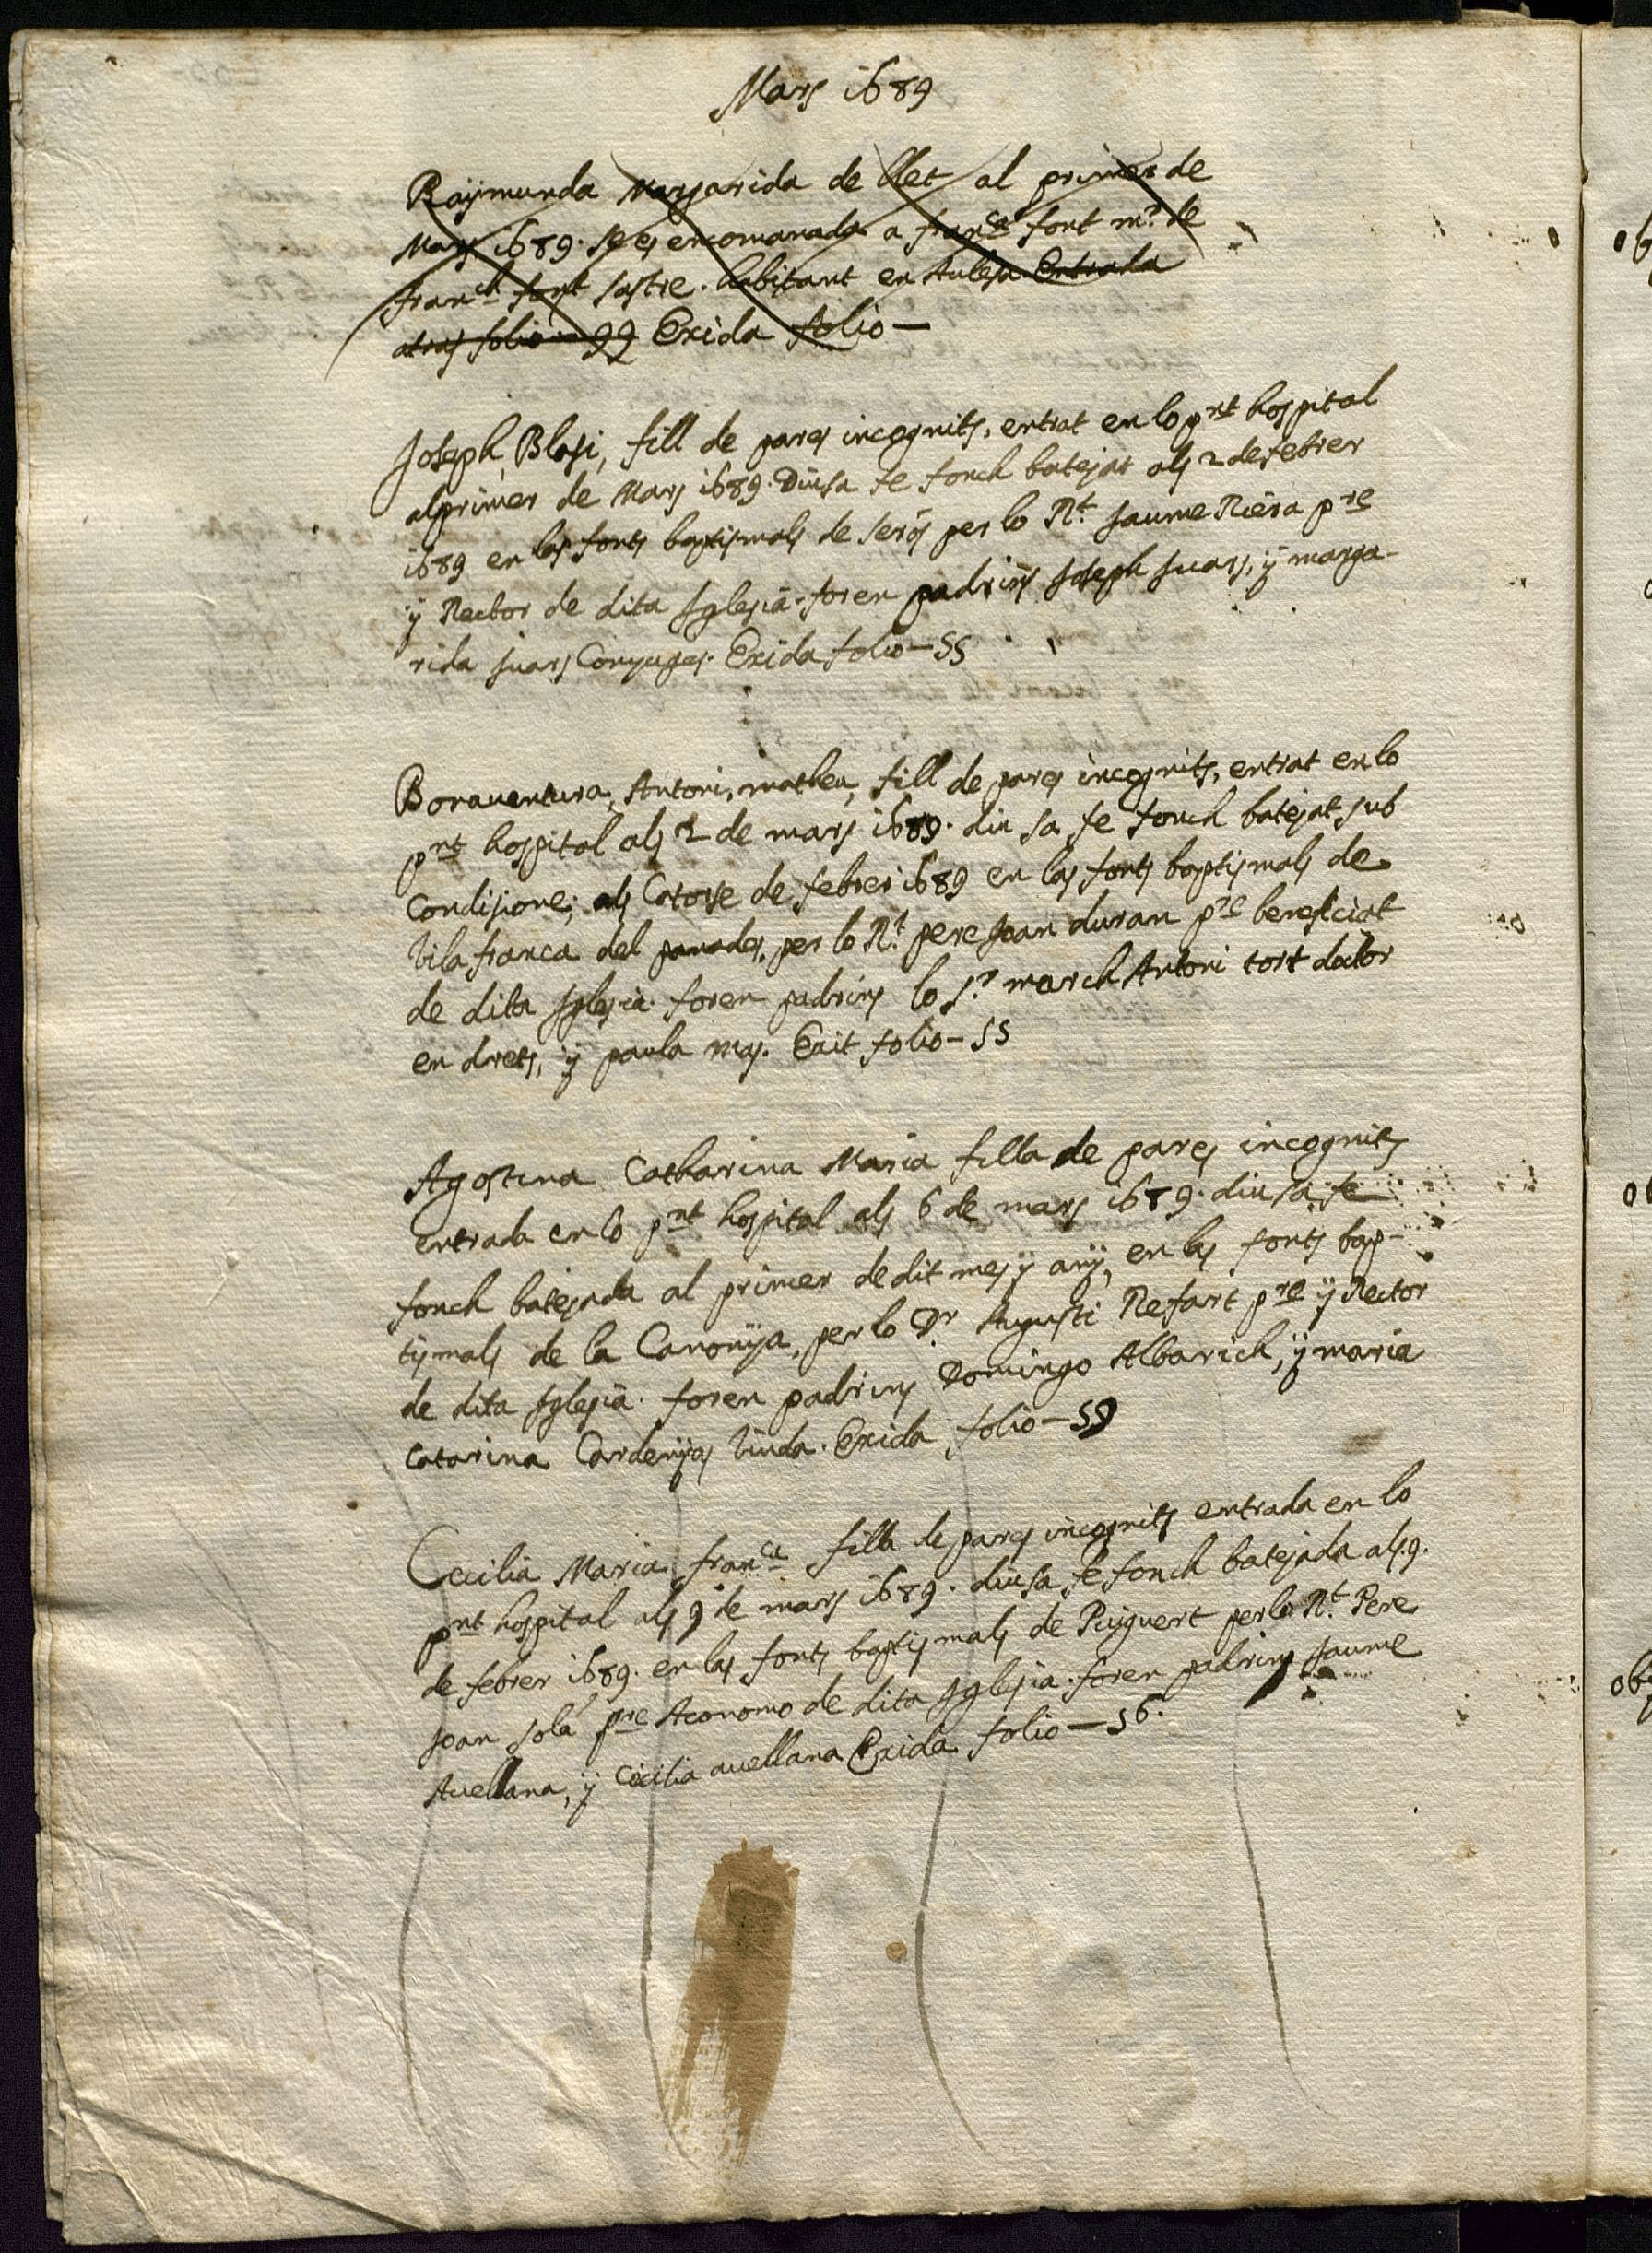 Mars 1689
Raÿmunda Margarida de llet al primer de
Mars 1689. se es encomanada a franca font mr. de
franch font sastre. habitant en Aulesa Entrada
atras folio 99 Exida folio—
Joseph, Blasi, fill de pares incognits, entrat en lo pnt hospital
al primer de Mars 1689. Diu sa fe fonch batejat als 2 de febrer
1689 en las fonts baptismals de Seros per lo Rt. Jaume Riera pre
ÿ Rector de dita Iglesia. foren padrins Joseph Juars, ÿ marga-
rida Juars Conjuges. Exida folio—55
Bonaventura, Antoni, matheu, fill de pares incognits, entrat en lo
pnt hospital als 2 de mars 1689. diu sa fe fonch batejat sub
Condisione; als Catorse de febrer 1689 en las fonts baptismals de
Vilafranca del panades, per lo Rt. pere Joan duran pre beneficiat
de dita Iglesia. foren padrins lo Sr. march Antoni tort doctor
en drets, ÿ paula mas. Exit folio—55
Agostina Catharina Maria filla de pares incognits
entrada en lo pnt hospital als 6 de mars 1689. diu sa fe
fonch batejada al primer de dit mes ÿ anÿ, en las fonts bap-
tismals de la Canonja, per lo Dr Augusti Refart pre ÿ Rector
de dita Iglesia. foren padrins Domingo Albarich, ÿ maria
Catarina Cardenÿas Viuda. Exida folio—59
Cecilia Maria, franca filla de pares incognits entrada en lo
pnt hospital als 9 de mars 1689. diu sa fe fonch batejada als .9.
de febrer 1689. en las fonts baptismals de Puiguert per lo Rt. Pere
Joan Solá pre Aconomo de dita Iglesia. foren padrins Jaume
Avellana, ÿ Cicilia avellana Exida folio—56.